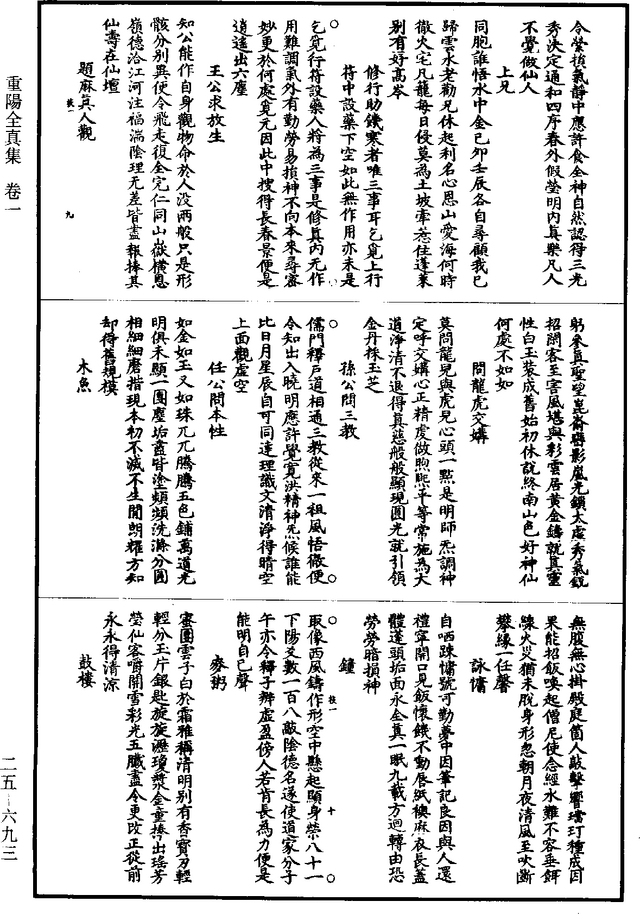 重陽全真集 卷一
二五—六九三
令瑩後氣靜中應許食全神自然認得三光
秀決定通和四序春外假瑩明内真樂凡人
不覺做仙人
上兄
同胞誰悟水中金己卯壬辰各自尋顧我已
歸雲水老勸兄休起利名心恩山愛海何時
徹火宅凡籠每日侵莫為土坡牽惹住蓬萊
别有好高岑
修行助饑寒者唯三事耳乞覓上行
符中設藥下空如此無作用亦未是
乞覓行符設藥人將為三事是修真内无作
用難調氣外有勤勞易損神不向本來尋密
妙更於何處覓元因此中搜得長春景便是
逍遙出六塵
王公求放生
知公能作自身觀物命於人没兩般只是形
骸分别異便令飛走復全完仁同山嶽横息
嶺德洽江河注福湍陰理无差皆盡報捧其
仙壽在仙壇
題麻真人觀
扶一 九
躬參真聖望崑崙巒影嵐光鎖太虛秀氣鋭
招閑客至害風堪與彩雲居黄金鑄就真靈
性白玉裝成舊始初休說終南山色好神仙
何處不如如
問龍虎交媾
莫問龍兒與虎兒心頭一點是明師炁調神
定呼交媾心正精虔做煦熙平等常施為大
道淨清不退得真慈般般顯現圓光就引領
金丹採玉芝
孫公問三教
儒門釋戶道相通三教從來一祖風悟徹便
令知出入曉明應許覺寬洪精神炁候誰能
比日月星辰自可同達理識文清淨得晴空
上面觀虚空
任公問本性
如金如玉又如珠兀兀騰騰五色鋪萬道光
明俱未顯一團塵垢盡皆塗頻頻洗滌分圓
相細細磨揩現本初不滅不生閒朗耀方知
却得舊規模
木魚
無腹無心掛殿庭箇人敲擊響璫玎種成因
果能招飯喚起僧尼使念經水難不容垂餌
線火災猶未脱身形忽朝月夜清風至吹斷
攀緣一任聲
詠慵
自哂踈慵號可勤夢中因筆記良因與人還
禮寧開口見飯懷饑不動唇紙襖麻衣長蓋
體蓬頭垢面永全真一眠九載方迴轉由恐
勞勞暗損神
鐘
扶一 十
取像西風鑄作形空中懸起顯身榮八十一
下陽爻數一百八敲陰德名遂使道家分子
午亦令釋子辨虚盈傍人若肯長為力便是
能明自己聲
麥粥
蜜團雲子白於霜雅稱清明别有香寶刃輕
輕分玉片銀匙旋旋瀝瓊漿金童捧出瑤芳
瑩仙客嚼開雪彩光五臟盡令更改正從前
永永得清凉
鼓樓